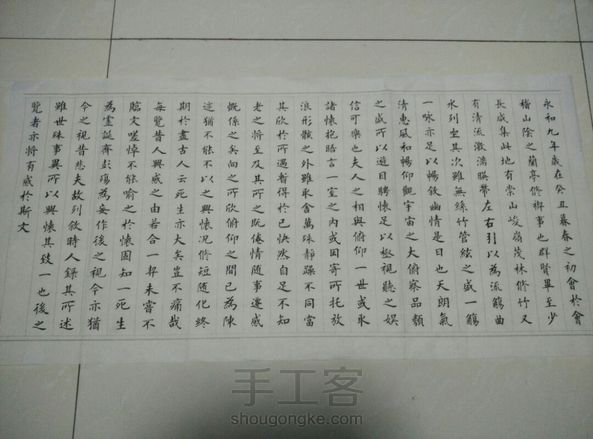 永和九年歲在癸丑暮春之初會於會
稽山陰之蘭亭修禊事也群賢畢至少
長咸集此地有崇山峻嶺茂林修竹又
有清流激湍映帶左右引以為流觴曲
水列坐其次雖無絲竹管絃之盛一觴
一詠亦足以暢敘幽情是日也天朗氣
清惠風和暢仰觀宇宙之大俯察品類
之盛所以遊目騁懷足以極視聽之娛
信可樂也夫人之相與俯仰一世或取
諸懷抱晤言一室之內或因寄所托放
浪形骸之外雖取舍萬殊靜躁不同當
其欣於所遇暫得於己快然自足不知
老之將至及其所之既倦情隨事遷感
慨係之矣向之所欣俯仰之間已為陳
迹猶不能不以之興懷況修短隨化終
期於盡古人云死生亦大矣豈不痛哉
每覽昔人興感之由若合一契未嘗不
臨文嗟悼不能喻之於懷固知一死生
為虛誕齊彭殤為妄作後之視今亦猶
今之視昔悲夫故列敘時人錄其所述
雖世殊事異所以興懷其致一也後之
覽者亦將有感於斯文
手工客
shougongke.com